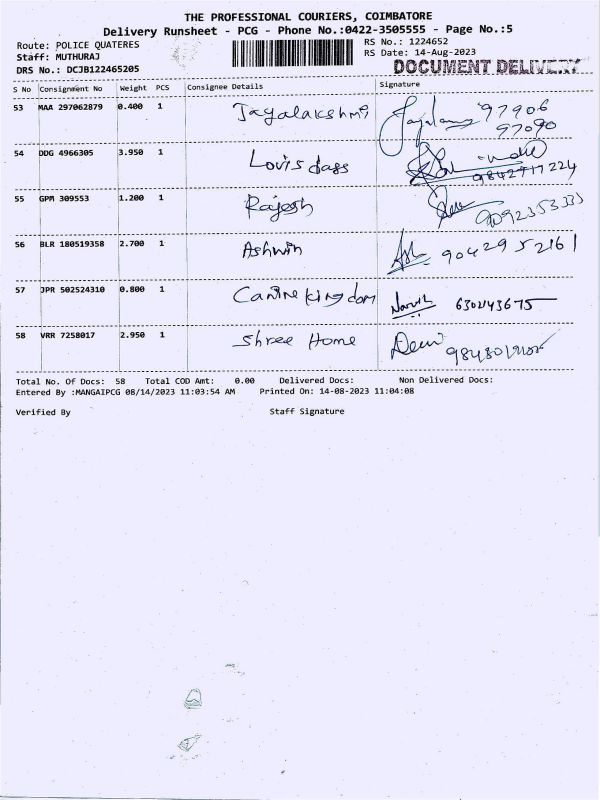 THE PROFESSIONAL COURIERS, COIMBATORE
Delivery Runsheet - PCG - Phone No.:0422-3505555 - Page No.:5
Route: POLICE QUATERES
RS No.: 1224652
Staff: MUTHURAJ
RS Date: 14-Aug-2023
DRS No.: DCJB122465205
DOCUMENT DELIVERY
S No Consignment No Weight PCS Consignee Details Signature
53 MAA 297062879 0.400 1 Jayalakshmi 97906
97090
54 DDG 4966305 3.950 1 Lovis dass
55 GPM 309553 1.200 1 Rajesh
56 BLR 180519358 2.700 1 Ashwin 9042952161
57 JPR 502524310 0.800 1 Canine kingdom
58 VRR 7258017 2.950 1 Shree Home
Total No. Of Docs: 58 Total COD Amt: 0.00 Delivered Docs: Non Delivered Docs:
Entered By :MANGAIPCG 08/14/2023 11:03:54 AM Printed On: 14-08-2023 11:04:08
Verified By Staff Signature